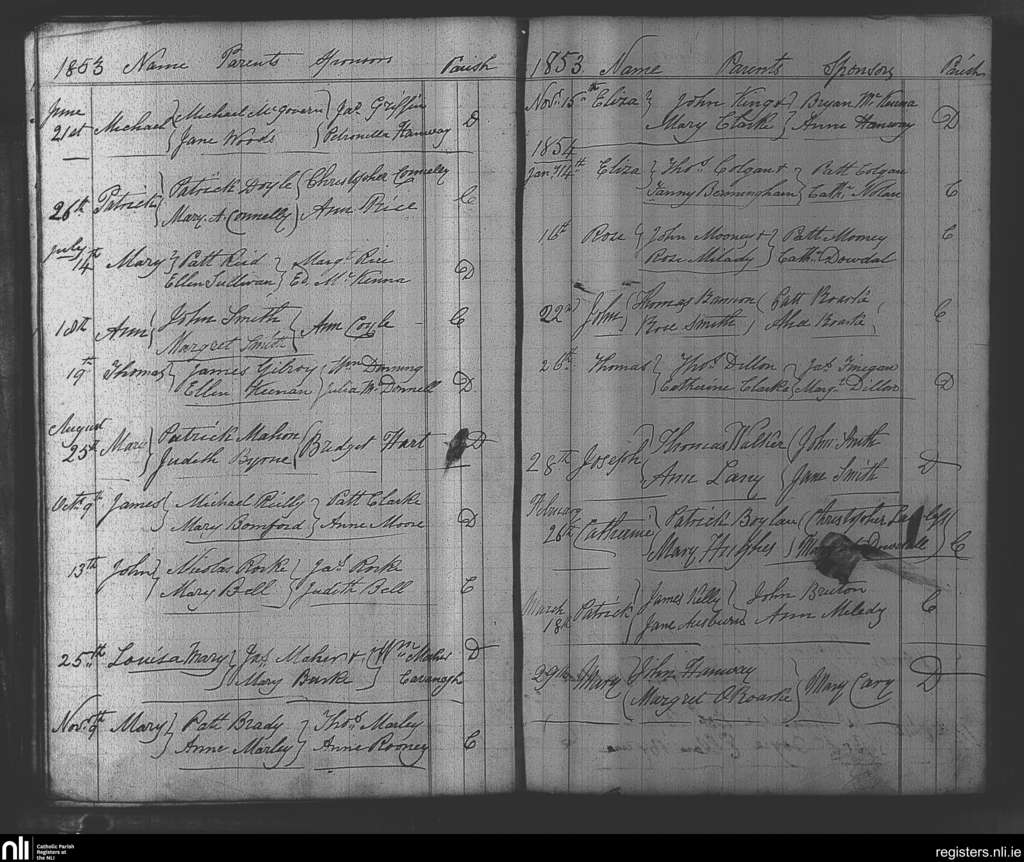 1853 Name Parents Sponsors Parish
June
21st Michael Michael McGovern Jas Griffin D
Jane Woods Petronella Hanway
26th Patrick Patrick Doyle Christopher Connelly C
Mary A. Connelly Ann Price
July
14th Mary Patt Reid Margt Rice
Ellen Sullivan Ed. McKenna D
18th Ann John Smith Ann Coyle C
Margret Smith
19th Thomas James Gilroy Wm Dunning
Ellen Keenan Julia McDonnell D
August
25th Mary Patrick Mahon Bridget Hart D
Judith Byrne
Octr 9th James Michael Reilly Patt Clarke
Mary Bomford Anne Moore D
13th John Nicolas Rorke Jas Rorke
Mary Bell Judith Bell C
25th Louisa Mary Jas Maher & Wm Maher D
Mary Burke Cavanagh
Novr 9th Mary Patt Brady Thos Marley
Anne Marley Anne Rooney C
1853 Name Parents Sponsors Parish
Novr 15th Eliza John King & Bryan McKenna
Mary Clarke Anne Hanway D
1854
Jany 14th Eliza Thos Colgan & Patt Colgan
Fanny Bermingham Cathe Nolan C
16th Rose John Mooney & Patt Mooney C
Rose Melady Cath Dowdal
22nd John Thomas Bannon Patt Roarke
Rose Smith Roarke C
26th Thomas Thos Dillon Jas Finegan
Catherine Clarke Margt Dillon D
28th Joseph Thomas Walker John Smith
Ann Lany Jane Smith D
February
26th Catherine Patrick Boylan Christopher
Mary Hughes Dowdall C
March
18th Patrick James Kelly John Bruton C
Jane Ann Melady
29th Mary John Hanway Mary Cary D
Margret O'Roarke
nli Catholic Parish
Registers at
the NLI
registers.nli.ie